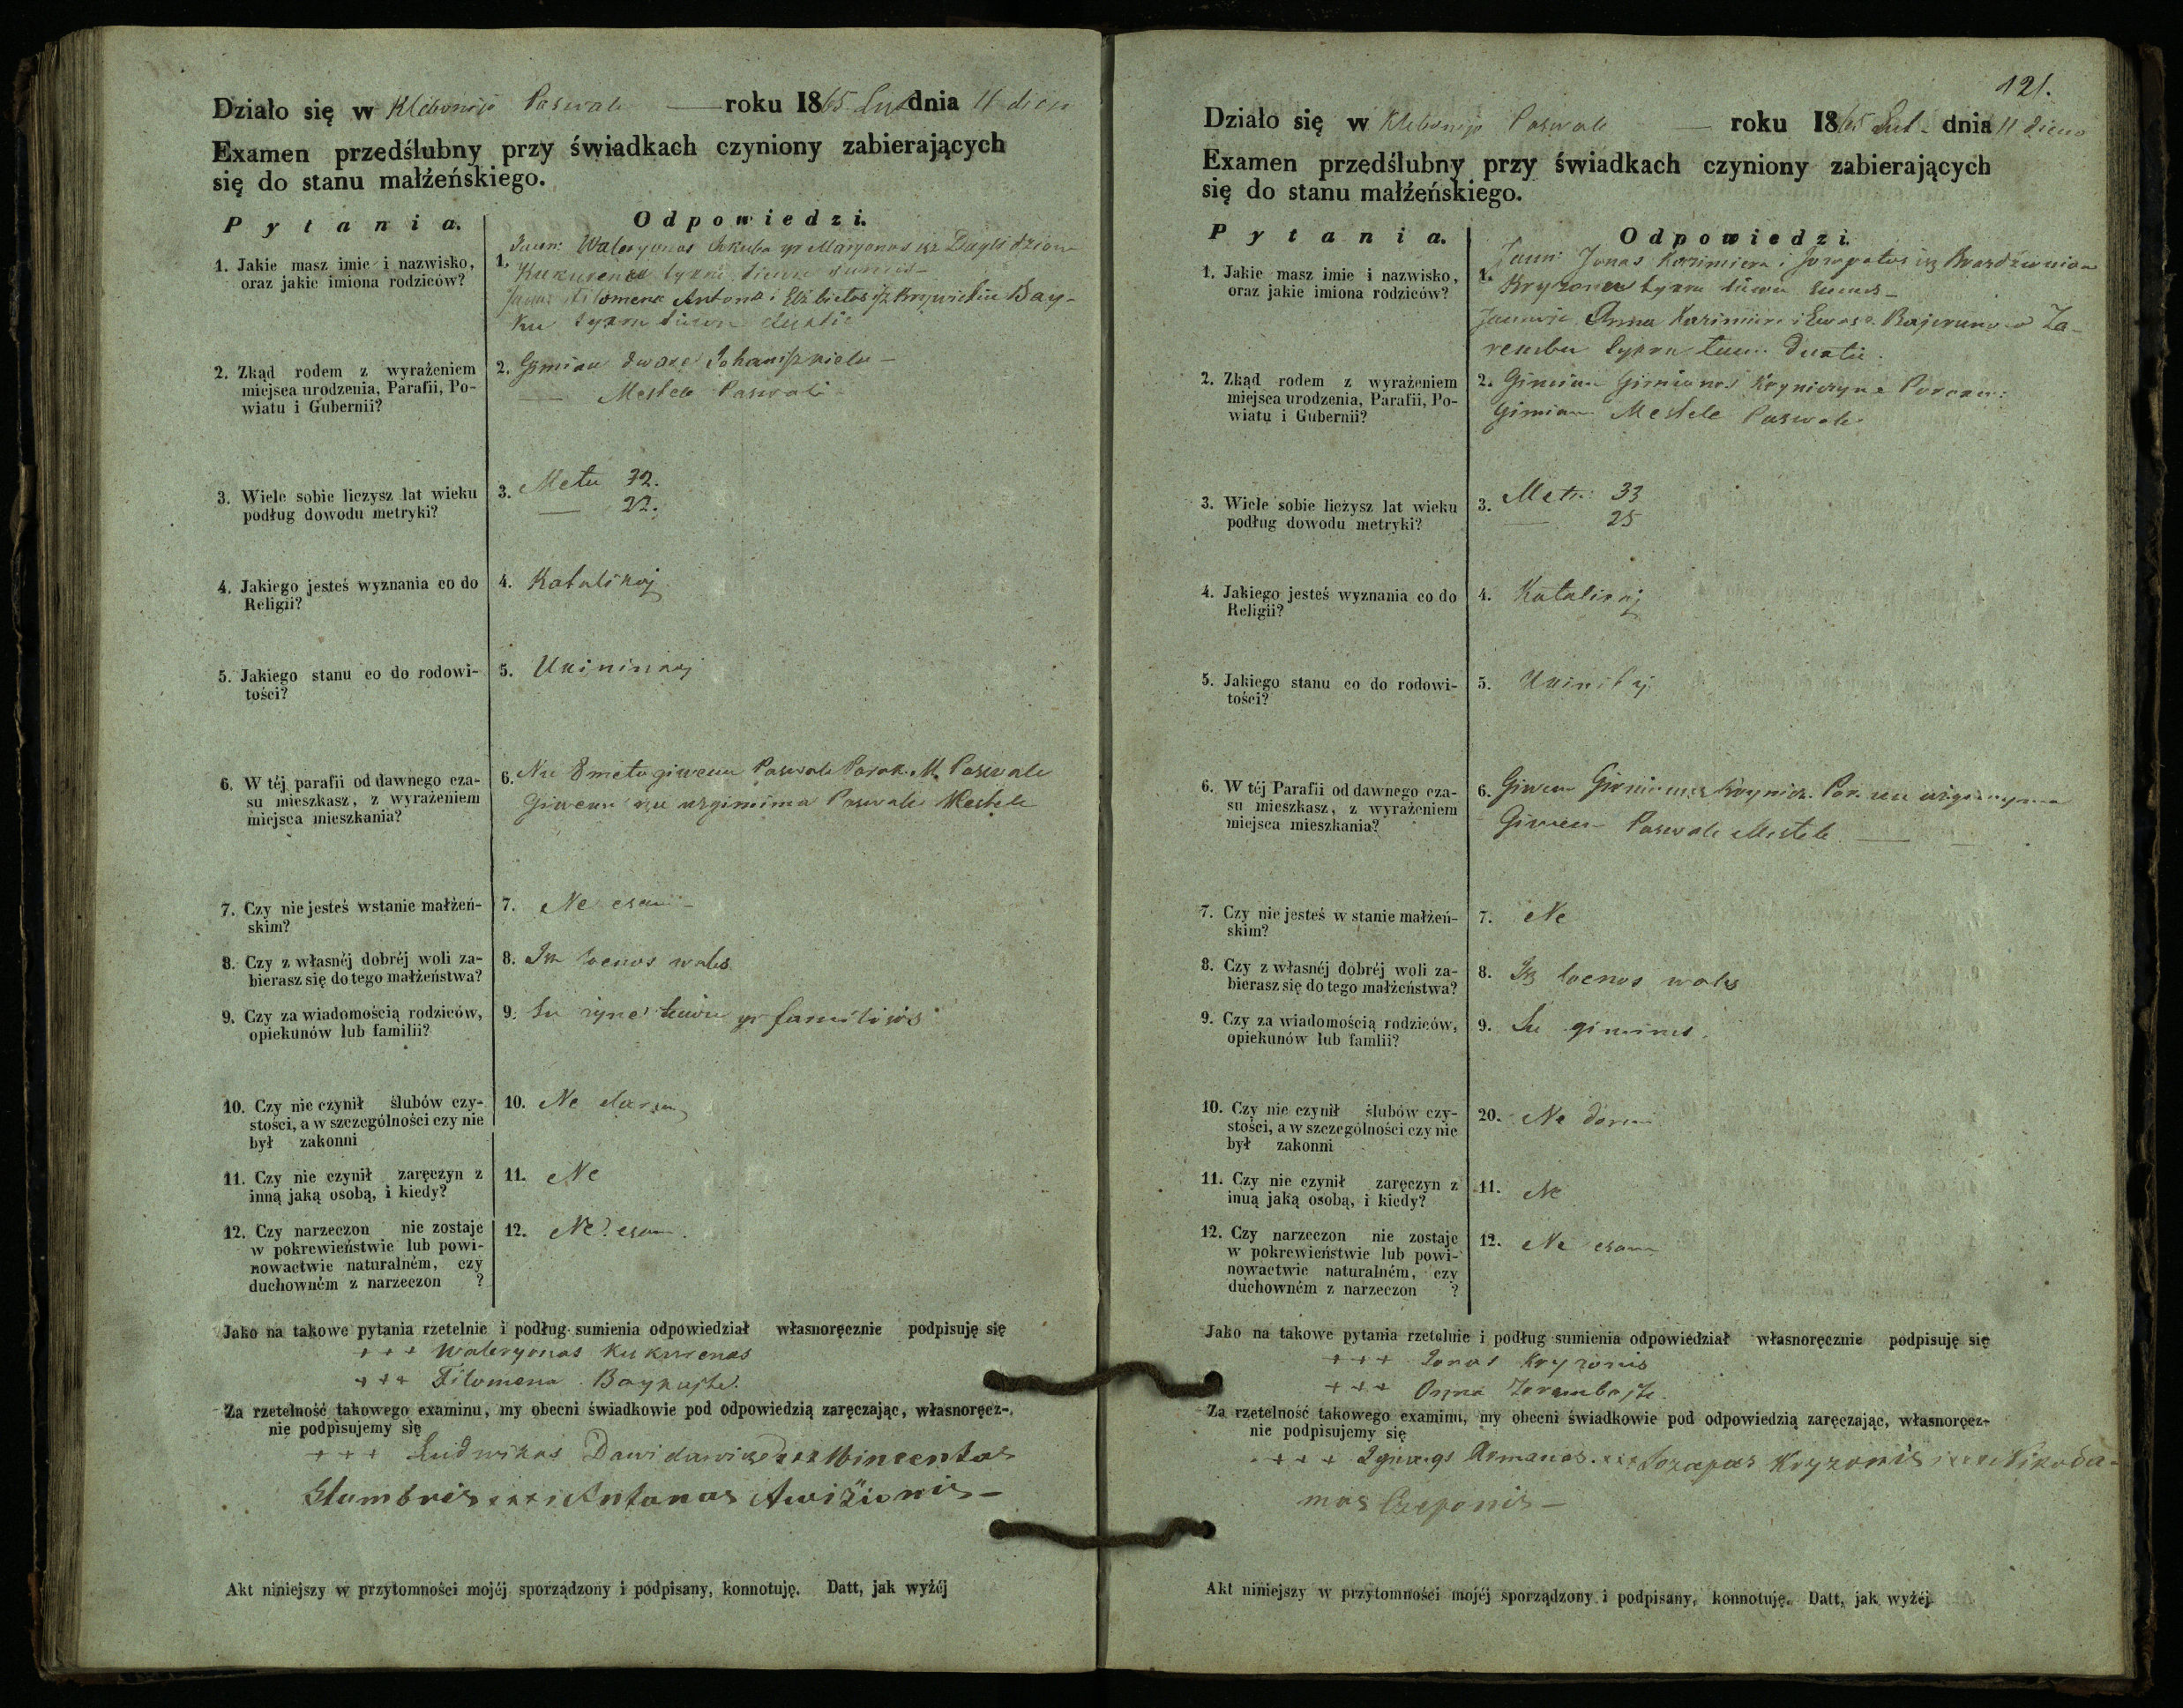 Działo się w Klebonijo Paswale — roku 1865 Lut dnia 11 dieno
Examen przedślubny przy świadkach czyniony zabierających
się do stanu małżeńskiego.
Pytania.
Odpowiedzi.
1. Jakie masz imie i nazwisko,
oraz jakie imiona rodziców?
1. Jaun: Waleryonas Jokuba yr Maryonos isz
Kukurenas tykru tiewu sunus —
Filomena Antona i Elżbietos isz Bay-
ku tykru tiewu
2. Zkąd rodem z wyrażeniem
miejsca urodzenia, Parafii, Po-
wiatu i Gubernii?
2. Gimiau dwaro Johaniszkielu —
— Mestele Paswali —
3. Wiele sobie liczysz lat wieku
podług dowodu metryki?
3. Metu 32.
— 22.
4. Jakiego jesteś wyznania co do
Religii?
4. Katalikaj
5. Jakiego stanu co do rodowi-
tości?
5. Ukininkaj
6. W téj parafii od dawnego cza-
su mieszkasz, z wyrażeniem
miejsca mieszkania?
6. Nu 8 metu giwenu Paswale Parak. M. Paswale
Giwenu nu uzgimima Paswale Mestele
7. Czy nie jesteś wstanie małżeń-
skim?
7. Ne esam —
8. Czy z własnéj dobréj woli za-
bierasz się do tego małżeństwa?
8. Isz locnos wales
9. Czy za wiadomością rodziców,
opiekunów lub familii?
9. Su zyne tiewu yr familijos
10. Czy nie czynił ślubów czy-
stości, a w szczególności czy nie
był zakonni
10. Ne
11. Czy nie czynił zaręczyn z
inną jaką osobą, i kiedy?
11. Ne
12. Czy narzeczon nie zostaje
w pokrewieństwie lub powi-
nowactwie naturalném, czy
duchowném z narzeczon ?
12. Ne esam.
Jako na takowe pytania rzetelnie i podług sumienia odpowiedział własnoręcznie podpisuję się
+ + + Waleryonas Kukurenas
+ + + Filomena Baykajte.
Za rzetelność takowego examinu, my obecni świadkowie pod odpowiedzią zaręczając, własnoręcz-
nie podpisujemy się
+ + + Ludwikas Dawidawicz x x x Wincentas
Stumbris x x x i Antanas Awiżionis —
Akt niniejszy w przytomności mojéj sporządzony i podpisany, konnotuję. Datt, jak wyżéj
121.
Działo się w Klebonijo Paswale — roku 1865 Lut. dnia 11 dieno
Examen przedślubny przy świadkach czyniony zabierających
się do stanu małżeńskiego.
Pytania.
Odpowiedzi.
1. Jakie masz imie i nazwisko,
oraz jakie imiona rodziców?
1. Jaun: Jonas Kazimiera i isz
Kryzonis tykru tiewu sunus —
Anna Kazimiera i Ewos Za-
rembu tykru tiewu
2. Zkąd rodem z wyrażeniem
miejsca urodzenia, Parafii, Po-
wiatu i Gubernii?
2. Gimiau
Gimiau Mestele Paswale
3. Wiele sobie liczysz lat wieku
podług dowodu metryki?
3. Metu 33
— 25
4. Jakiego jesteś wyznania co do
Religii?
4. Katalikaj
5. Jakiego stanu co do rodowi-
tości?
5.
6. W téj Parafii od dawnego cza-
su mieszkasz, z wyrażeniem
miejsca mieszkania?
6. Giwenu Par. nu
Giwenu Paswale Mestele —
7. Czy nie jesteś w stanie małżeń-
skim?
7. Ne
8. Czy z własnéj dobréj woli za-
bierasz się do tego małżeństwa?
8. Isz locnos wales
9. Czy za wiadomością rodziców,
opiekunów lub familii?
9. Su giminies.
10. Czy nie czynił ślubów czy-
stości, a w szczególności czy nie
był zakonni
20. Ne
11. Czy nie czynił zaręczyn z
inuą jaką osobą, i kiedy?
11. Ne
12. Czy narzeczon nie zostaje
w pokrewieństwie lub powi-
nowactwie naturalném, czy
duchowném z narzeczon ?
12. Ne esam
Jako na takowe pytania rzetelnie i podług sumienia odpowiedział własnoręcznie podpisuję się
+ + + Jonas Kryzonis
+ + + Onna Zarembajte.
Za rzetelność takowego examinu, my obecni świadkowie pod odpowiedzią zaręczając, własnoręcz-
nie podpisujemy się
+ + + Armanas. x x x Jozapas Kryzonis i x x x Nikoda-
mas Czeponis —
Akt niniejszy w przytomności mojéj sporządzony i podpisany, konnotuję. Datt, jak wyżéj